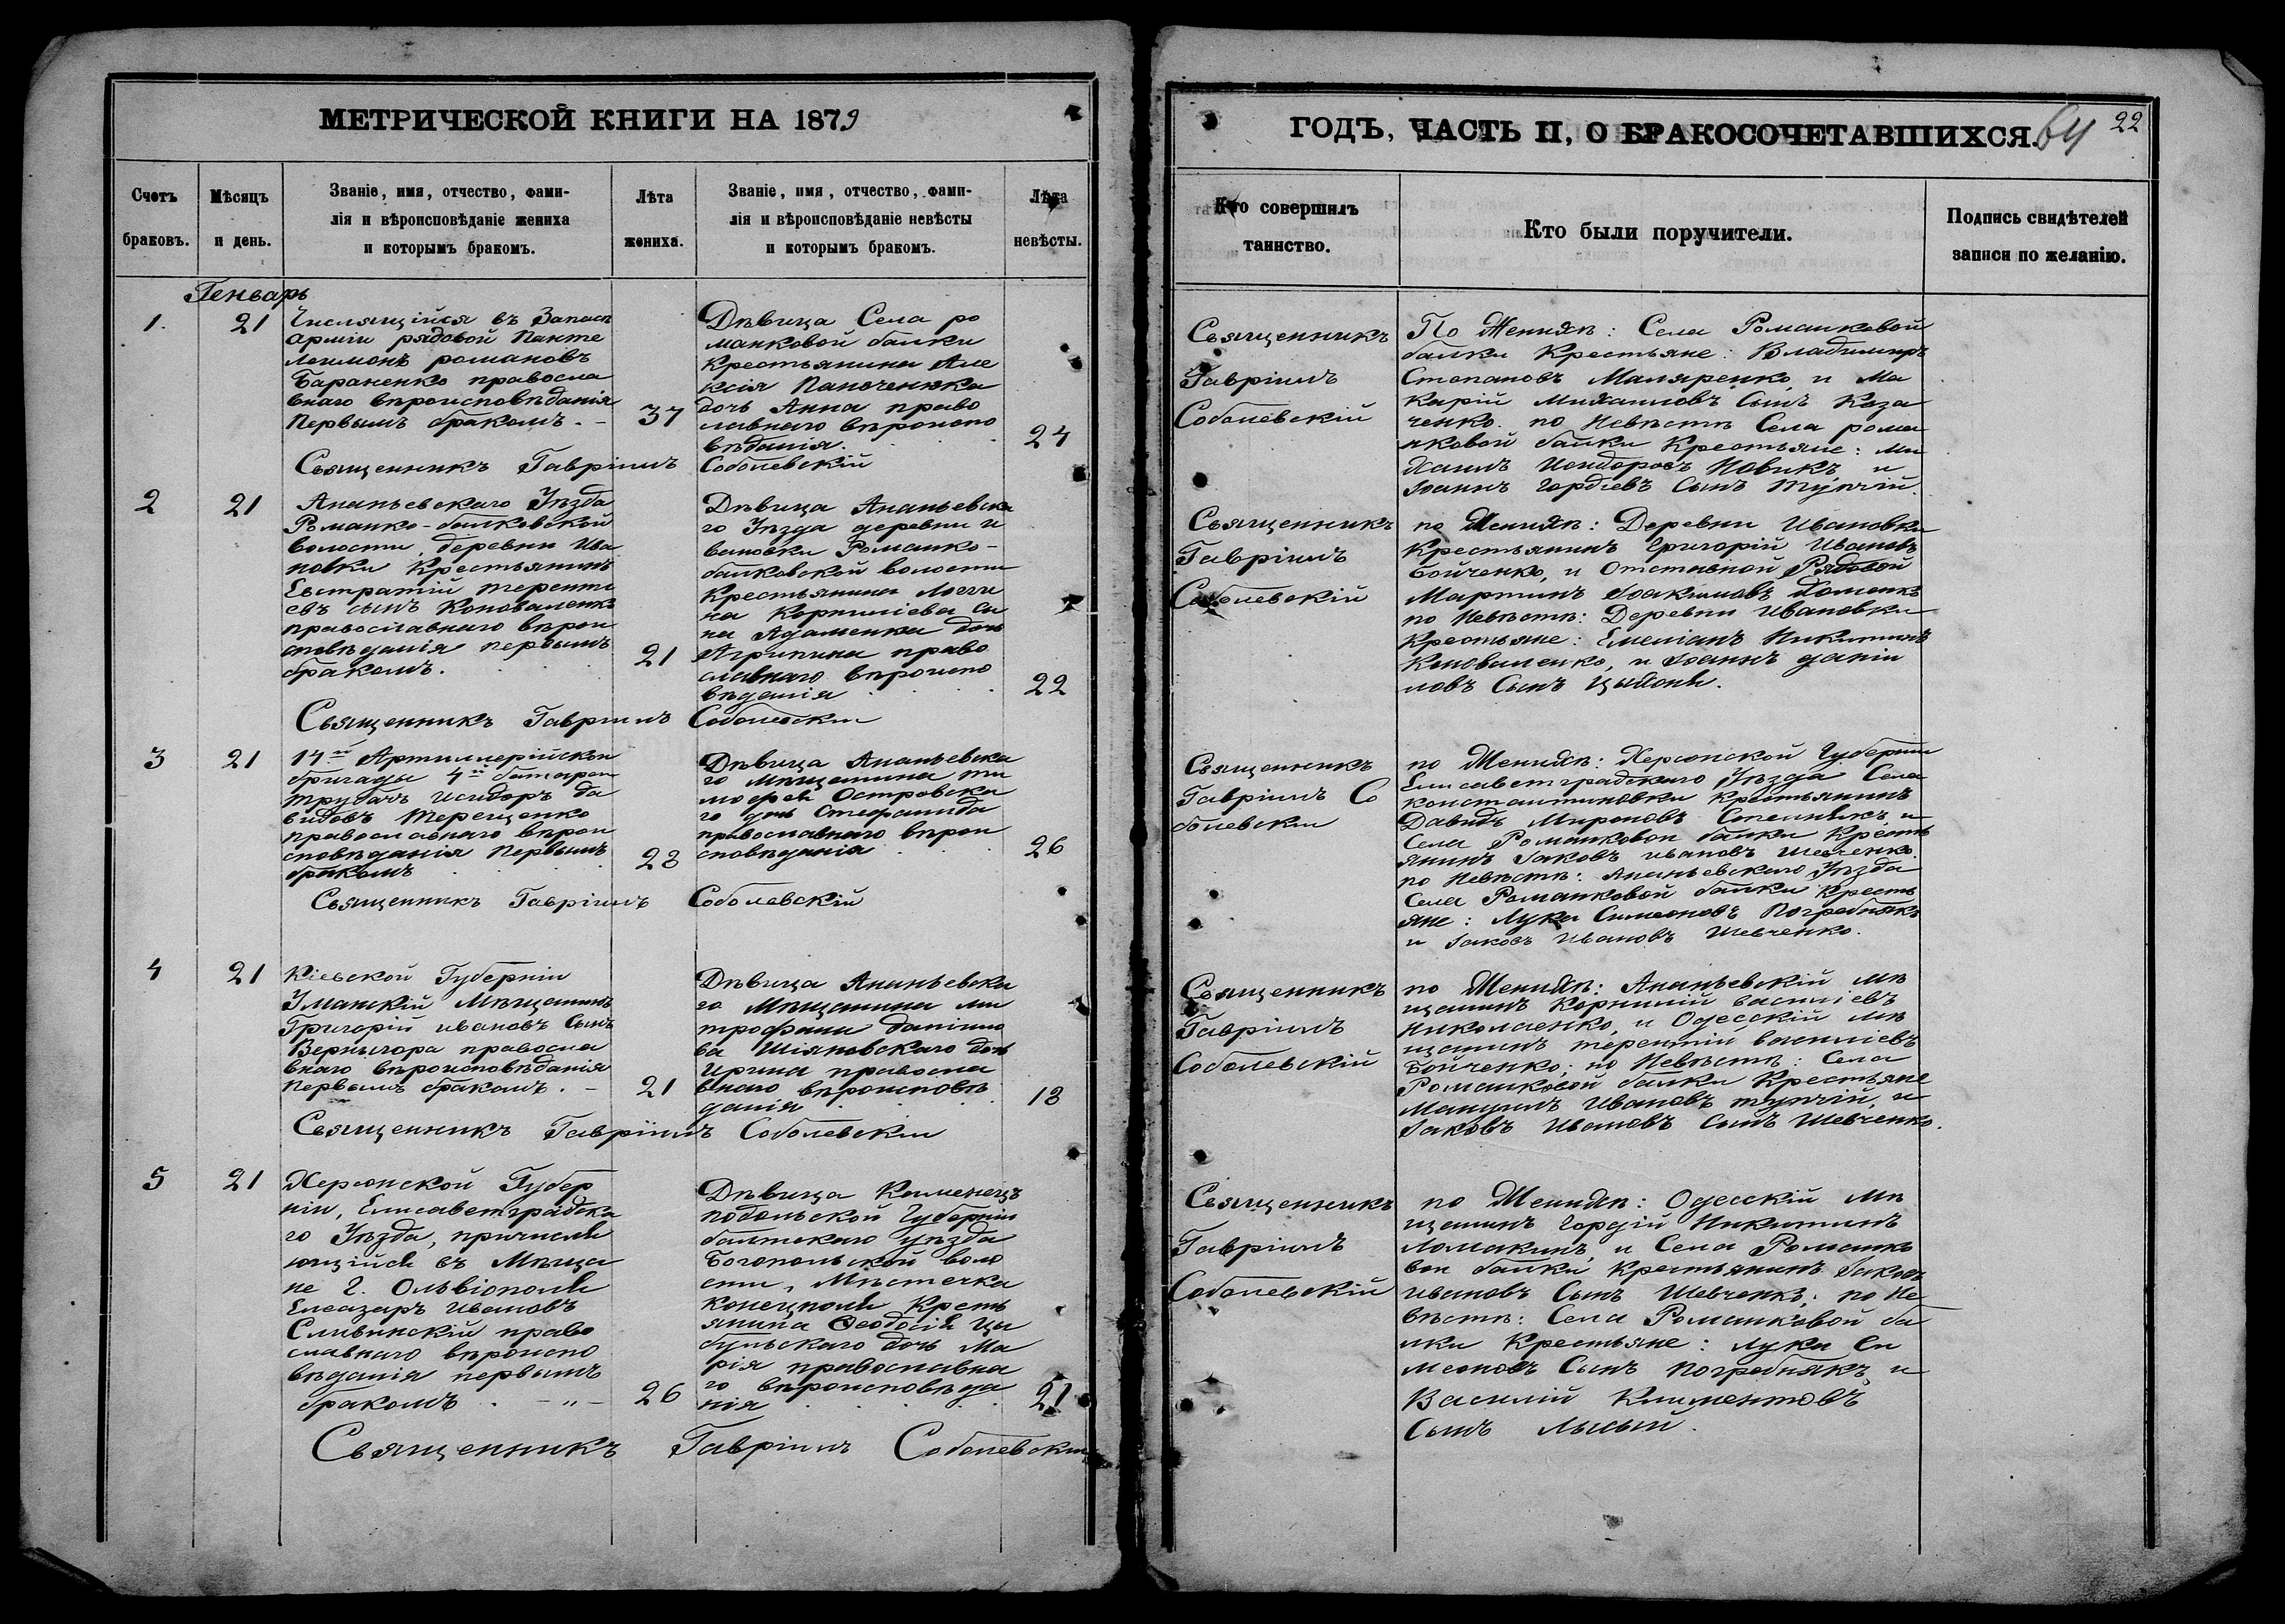 МЕТРИЧЕСКОЙ КНИГИ НА 1879
Счетъ браковъ.
Мѣсяцъ и день.
Званіе, имя, отчество, фами-
лія и вѣроисповѣданіе жениха
и которымъ бракомъ.
Лѣта жениха.
Званіе, имя, отчество, фами-
лія и вѣроисповѣданіе невѣсты
и которымъ бракомъ.
Лѣта невѣсты.
Генварь
1.
21
Числящійся въ Запасѣ
Арміи рядовой Панте
леимонъ романовъ
Бараненко правосла
внаго вѣроисповѣданія
Первымъ бракомъ. -
37
Дѣвица Села ро
манковой балки
Крестьянина Але
ксія Паноченка
дочь Анна право
славнаго вѣроиспо
вѣданія.
24
Священникъ Гавріилъ Соболевскій
2
21
Ананьевскаго Уѣзда
Романко-балковской
волости, деревни Ива
новки Крестьянинъ
Евстратій Теренті
евъ сынъ Коноваленко
православнаго вѣрои
сповѣданія первымъ
бракомъ.
21
Дѣвица Ананьевска
го Уѣзда деревни и
вановки Романко-
балковской волости
Крестьянина Логги
на Корниліева сы
на Адаменка дочь
Агрипина право
славнаго вѣроиспо
вѣданія
22
Священникъ Гавріилъ Соболевскій
3
21
14й Артиллерійской
бригады 4й батареи
трубачъ Исидоръ Да
видовъ Терещенко
православнаго вѣрои
сповѣданія Первымъ
бракомъ
28
Дѣвица Ананьевска
го Мѣщанина Ти
мофея Островска
го дочь Стефанида
православнаго вѣрои
сповѣданія
26
Священникъ Гавріилъ Соболевскій
4
21
Кіевской Губерніи
Уманскій Мѣщанинъ
Григорій Ивановъ Сынъ
Вернигора правосла
внаго вѣроисповѣданія
Первымъ бракомъ. -
21
Дѣвица Ананьевска
го Мѣщанина Ми
трофана Даніило
ва Шіяновскаго дочь
Ирина правосла
внаго вѣроисповѣ
данія
18
Священникъ Гавріилъ Соболевскій
5
21
Херсонской Губер
ніи, Елисаветградска
го Уѣзда, причисля
ющійся въ Мѣща
не г. Ольвіополя
Елеазаръ Ивановъ
Сливинскій право
славнаго вѣроиспо
вѣданія первымъ
бракомъ . - " -
26
Дѣвица Каменецъ
подольской Губерніи
балтскаго уѣзда
Богопольской воло
сти, Мѣстечка
Конецполя Кресть
янина Ѳеодосія Цы
бульскаго дочь Ма
рія православна
го вѣроисповѣда
нія
21
Священникъ Гавріилъ Соболевскій
ГОДЪ, ЧАСТЬ II, О БРАКОСОЧЕТАВШИХСЯ.
64
22
Кто совершилъ таинство.
Кто были поручители.
Подпись свидѣтелей
записи по желанію.
Священникъ
Гавріилъ
Соболевскій
По Женихѣ: Села Романковой
балки Крестьяне: Владимиръ
Степановъ Маляренко, и Ма
карій Михаиловъ Сынъ Коза
ченко. по Невѣстѣ Села рома
нковой балки Крестьяне: Ми
хаилъ Исидоровъ Новикъ, и
Іоаннъ Гордіевъ Сынъ Тупчій.
Священникъ
Гавріилъ
Соболевскій
по Женихѣ: Деревни Ивановки
Крестьянинъ Григорій Ивановъ
Бойченко, и Отставной Рядовой
Мартинъ Іоакимовъ
по Невѣстѣ: Деревни Ивановки
Крестьяне: Емеліанъ Никитинъ
Коноваленко, и Іоаннъ Даніи
ловъ Сынъ
Священникъ
Гавріилъ Со
болевскій
по Женихѣ: Херсонской Губерніи
Елисаветградскаго Уѣзда Села
Константиновки Крестьянинъ
Давидъ Мироновъ и
Села Романковой балки Кресть
янинъ Іаковъ Ивановъ Шевченко.
по Невѣстѣ: Ананьевскаго Уѣзда
Села Романковой балки Кресть
яне: Лука Симеоновъ Погребнякъ
и Іаковъ Ивановъ Шевченко.
Священникъ
Гавріилъ
Соболевскій
по Женихѣ: Ананьевскій Мѣ
щанинъ Корнилій Василіевъ
Николаенко, и Одесскій мѣ
щанинъ Терентій Василіевъ
Бойченко; по Невѣстѣ: Села
Романковой балки Крестьяне
Мануилъ Ивановъ Тупчій, и
Іаковъ Ивановъ Сынъ Шевченко.
Священникъ
Гавріилъ
Соболевскій
по Женихѣ: Одесскій Мѣ
щанинъ Гордій Никитинъ
Ломакинъ, и Села Романко
вой балки Крестьянинъ Іаковъ
Ивановъ Сынъ Шевченко; по Не
вѣстѣ: Села Романковой ба
лки Крестьяне: Лука Си
меоновъ Сынъ Погребнякъ, и
Василій Климентовъ
Сынъ Лысый.